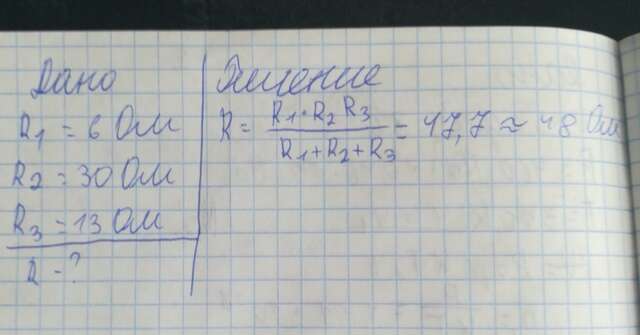 Дано
R1 = 6 Ом
R2 = 30 Ом
R3 = 13 Ом
R - ?
Решение
R = R1·R2 R3 / R1+R2+R3 = 47,7 ≈ 48 Ом